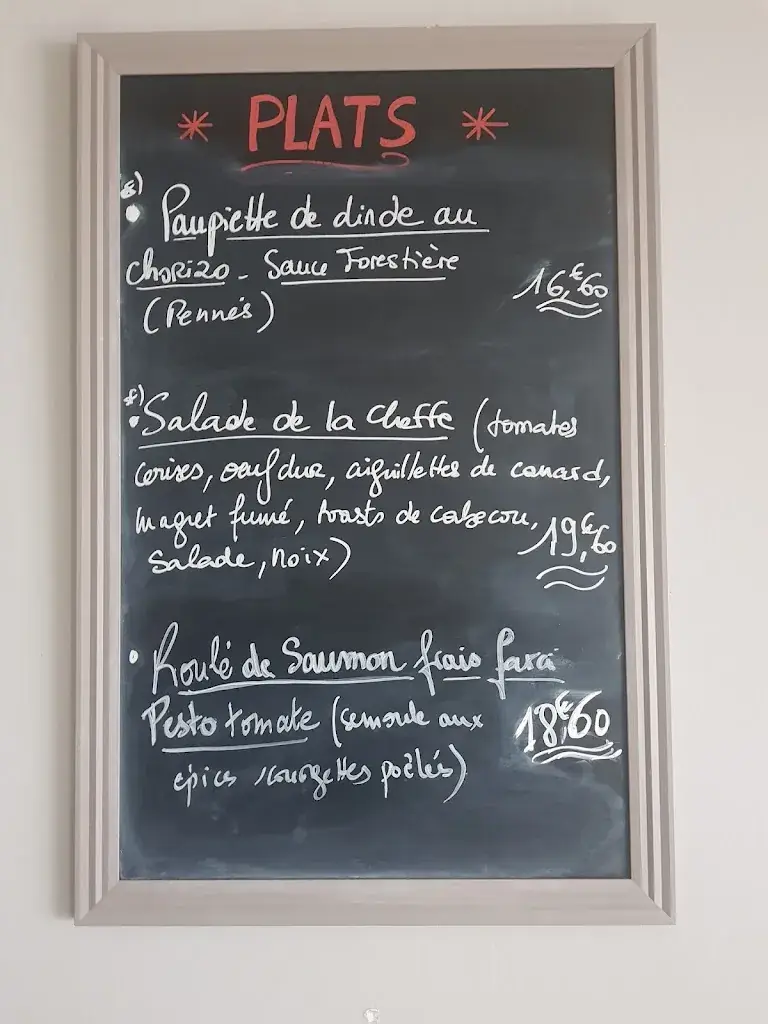 * PLATS *
*)
• Paupiette de dinde au
chorizo - Sauce Forestière
(Pennés) 16,€60
*)
• Salade de la Cheffe (tomates
cerises, oeuf dur, aiguillettes de canard,
magret fumé, toasts de cabecou,
Salade, noix) 19,€60
• Roulé de Saumon frais farci
Pesto tomate (semoule aux
épices, courgettes poêlés) 18,€60